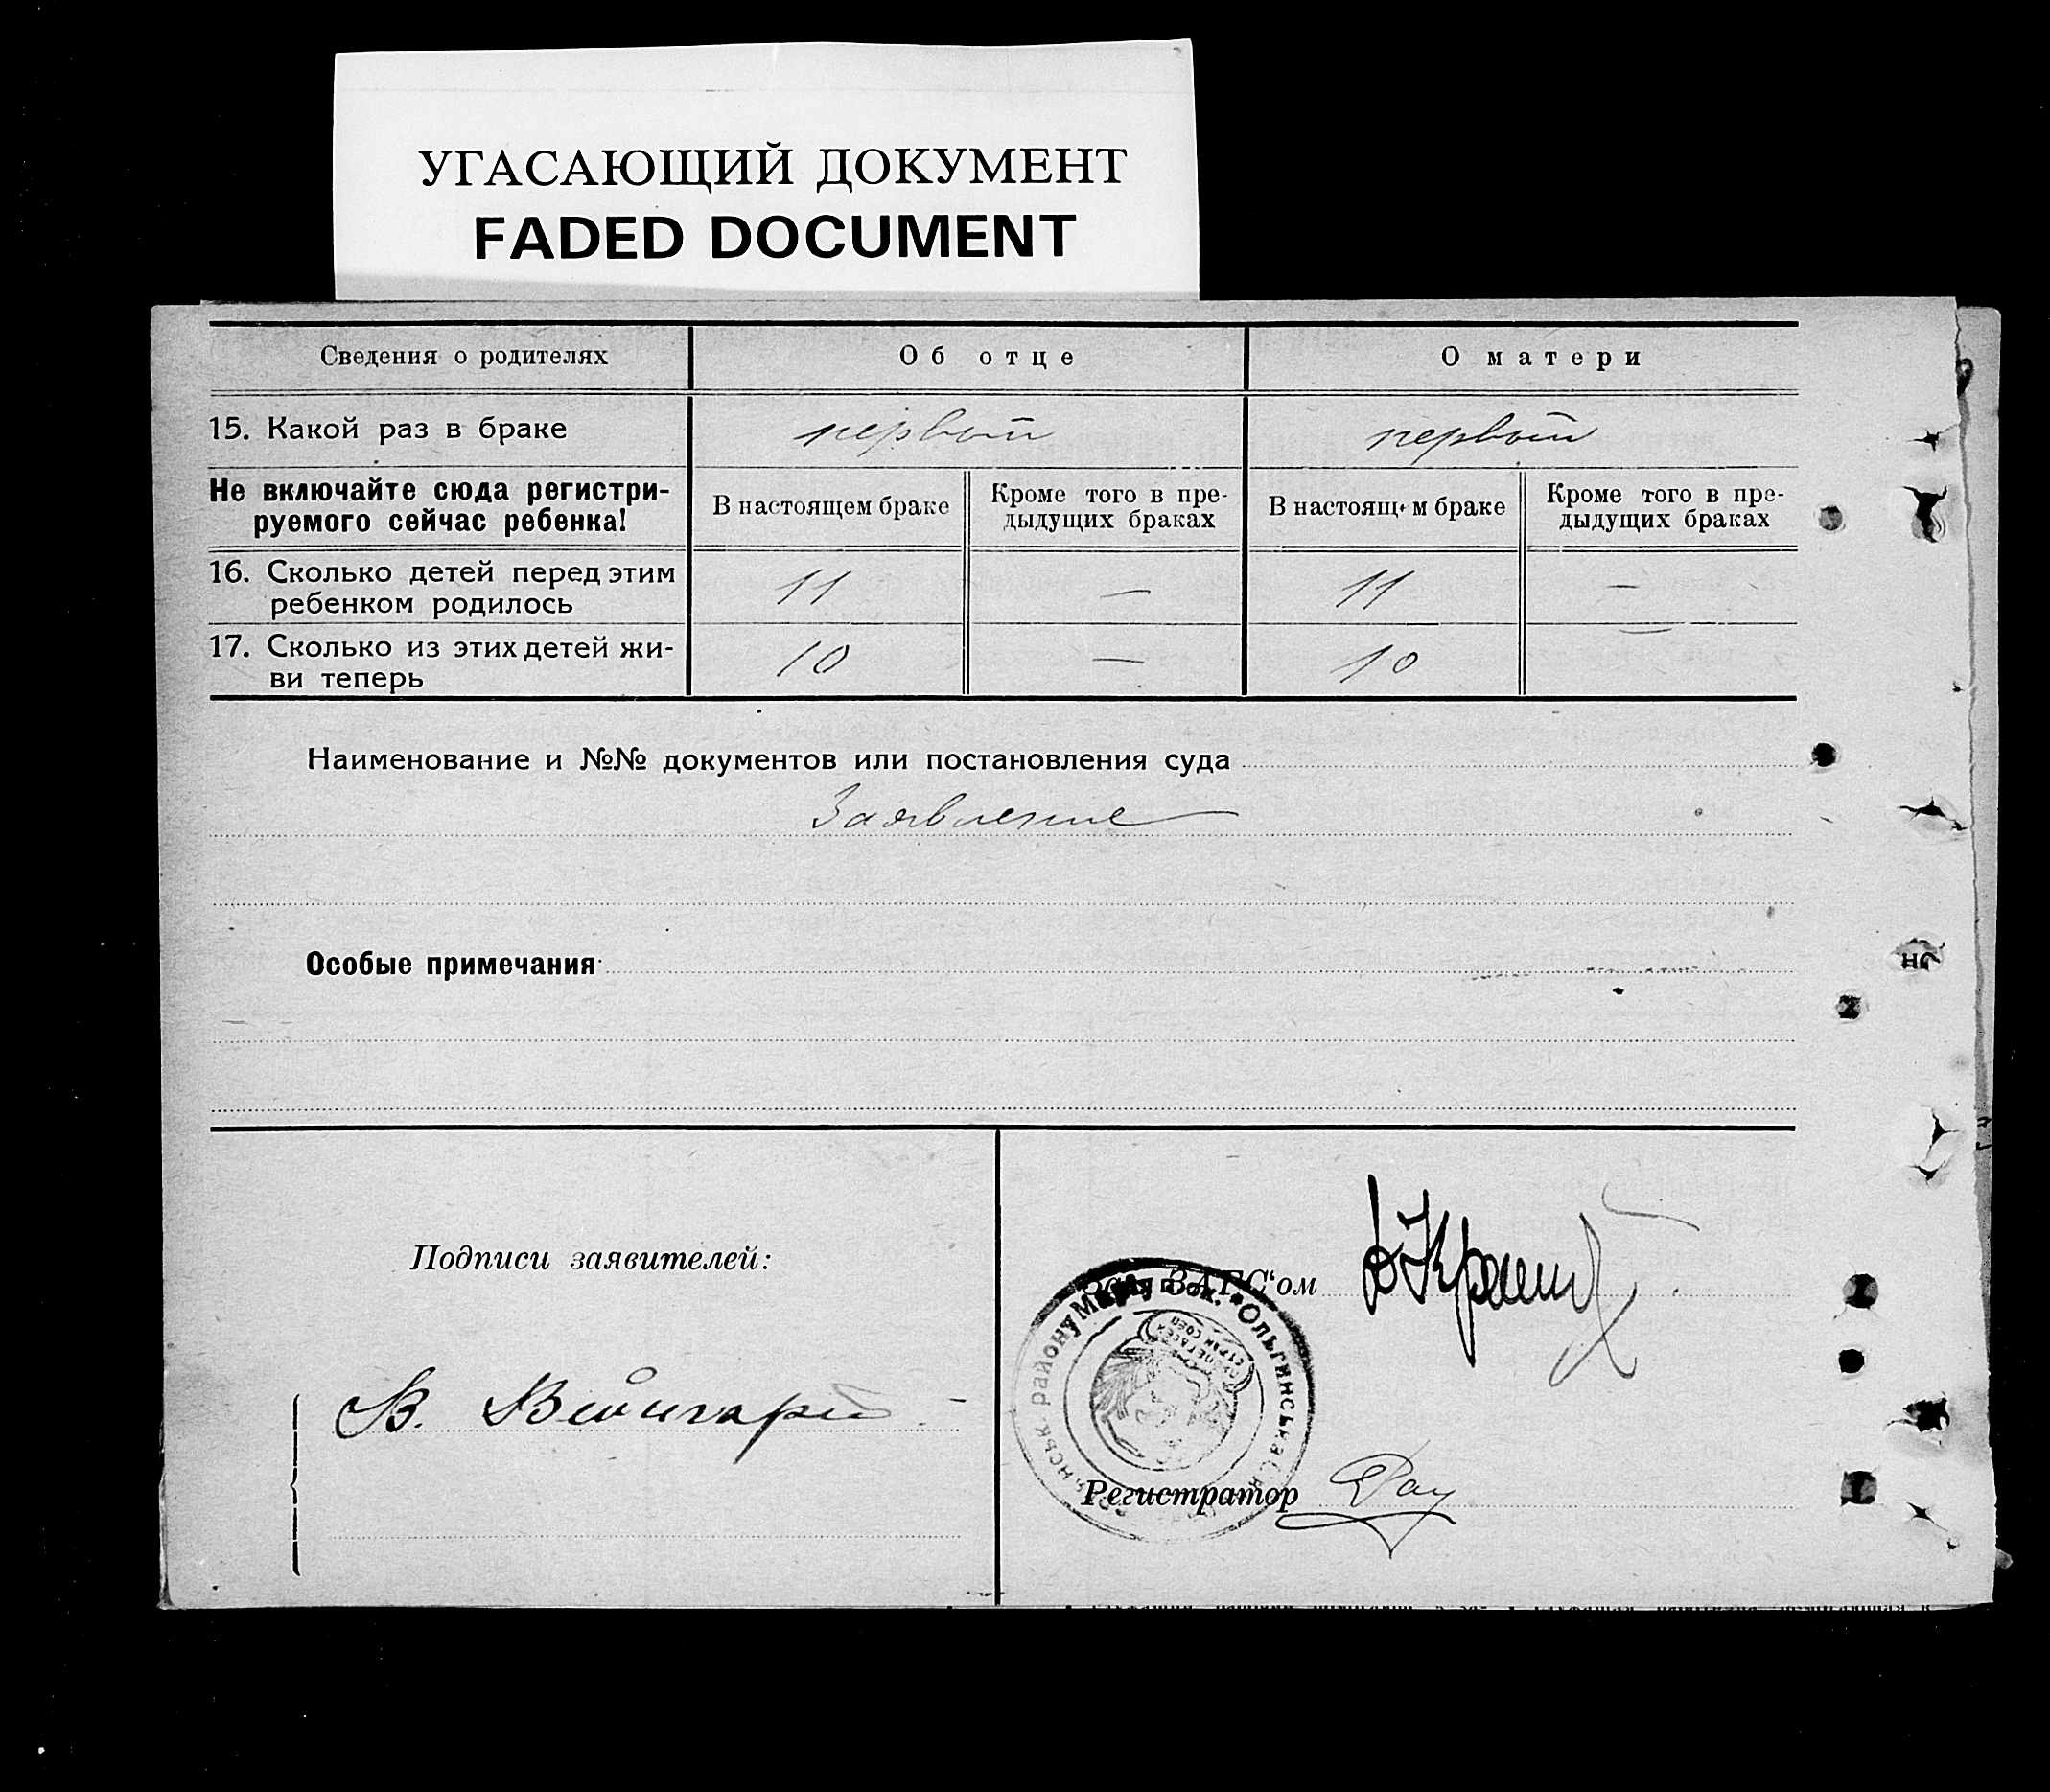 УГАСАЮЩИЙ ДОКУМЕНТ
FADED DOCUMENT
Сведения о родителях Об отце О матери
15. Какой раз в браке первый первый
Не включайте сюда регистри-
руемого сейчас ребенка!
В настоящем браке
Кроме того в пре-
дыдущих браках
В настоящ м браке
Кроме того в пре-
дыдущих браках
16. Сколько детей перед этим
ребенком родилось
11 — 11 —
17. Сколько из этих детей жи-
ви теперь
10 — 10 —
Наименование и №№ документов или постановления суда
Заявление
Особые примечания
Подписи заявителей:
Зав. ЗАГС'ом
В.
Ольгинська
району
Регистратор